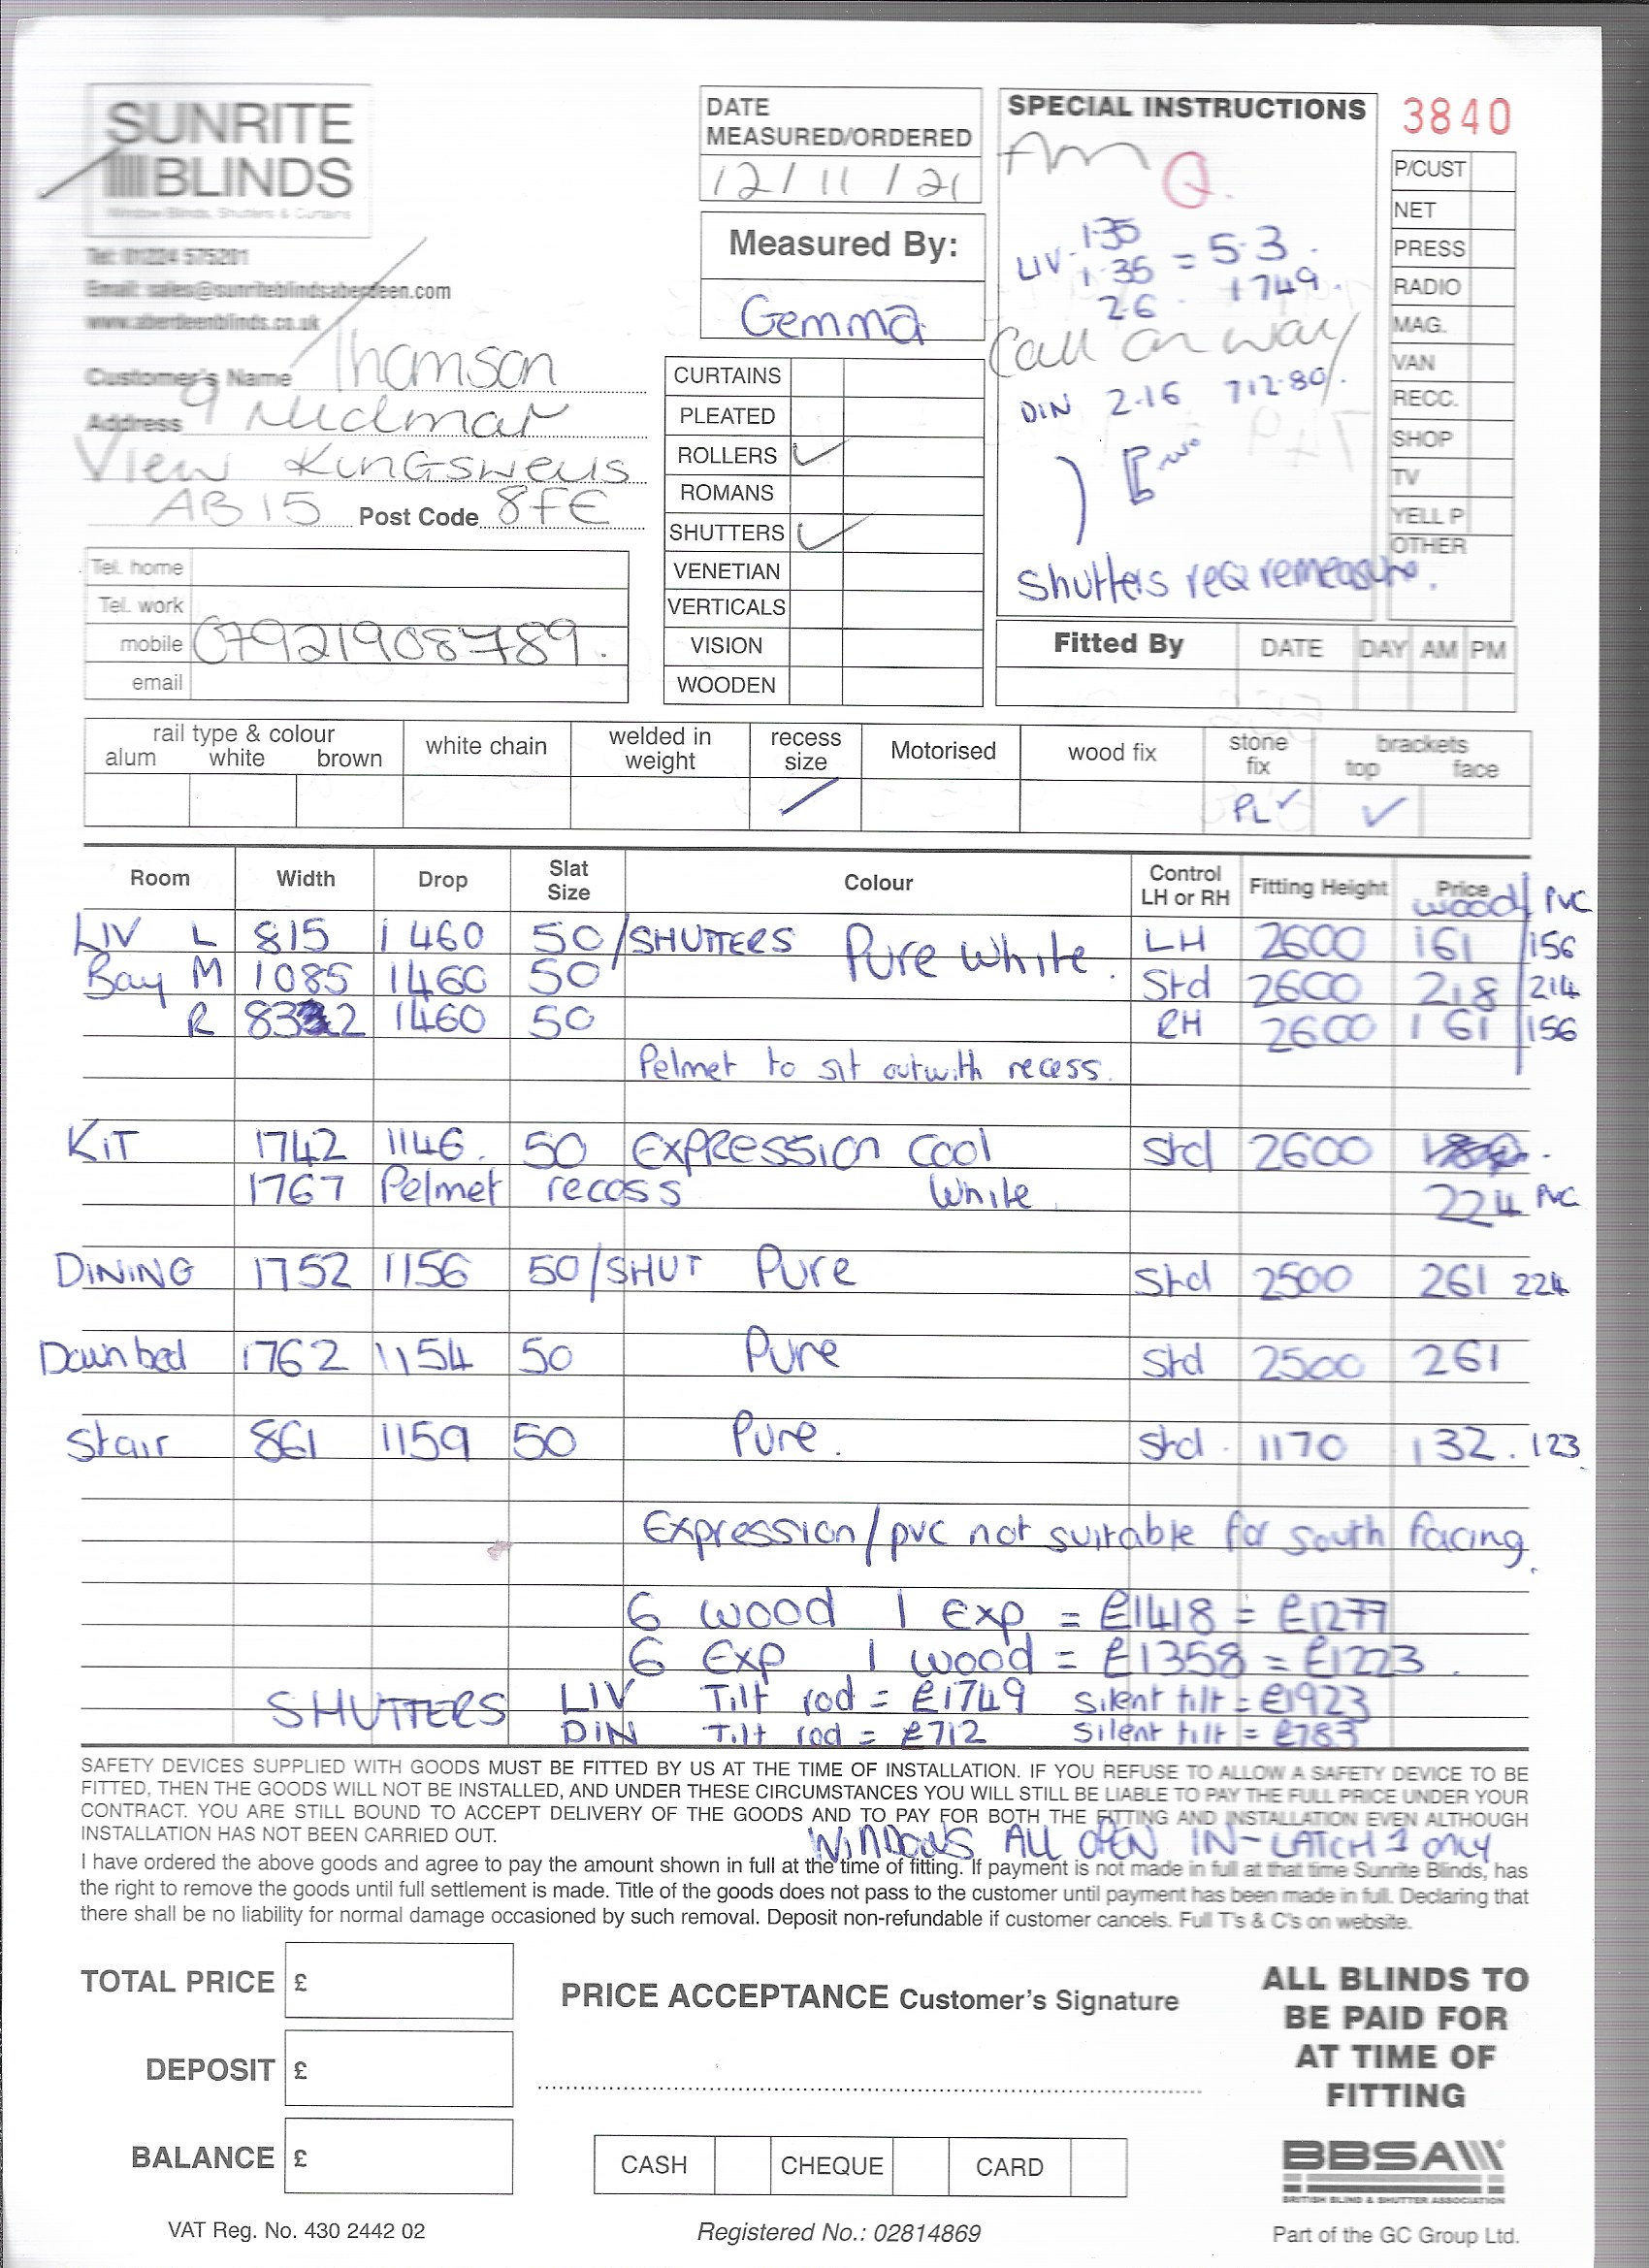 SUNRITE
BLINDS
Window Blinds, Shutters & Curtains
Tel: 01224 575201
Email: sales@sunriteblindsaberdeen.com
www.aberdeenblinds.co.uk
DATE
MEASURED/ORDERED
12/11/21
Measured By:
Gemma
SPECIAL INSTRUCTIONS
Am Q.
LIV - 1.35
1.35 = 5.3.
2.6 1749.
Call on way
DIN 2.16 712.80/.
Shutters req remeasure.
3840
P/CUST
NET
PRESS
RADIO
MAG.
VAN
RECC.
SHOP
TV
YELL P
OTHER
Customer's Name Thomson
Address 9 Midmar
View Kingswells
AB15 Post Code 8FE
Tel. home
Tel. work
mobile 07921908789.
email
CURTAINS
PLEATED
ROLLERS ✓
ROMANS
SHUTTERS ✓
VENETIAN
VERTICALS
VISION
WOODEN
Fitted By DATE DAY AM PM
rail type & colour
alum white brown
white chain
welded in
weight
recess
size
Motorised
wood fix
stone
fix
brackets
top face
/ PL ✓ ✓
Room Width Drop Slat Size Colour Control LH or RH Fitting Height Price
wood/ PVC
LIV L 815 1460 50/SHUTTERS Pure White. LH 2600 161 /156
Bay M 1085 1460 50 Std 2600 218 /214
R 832 1460 50 RH 2600 161 /156
Pelmet to sit outwith recess.
KIT 1742 1146. 50 Expression Cool Std 2600
1767 Pelmet recess White 224 PVC
DINING 1752 1156 50/SHUT Pure Std 2500 261 224
Down bed 1762 1154 50 Pure Std 2500 261
Stair 861 1159 50 Pure. Std. 1170 132. 123
Expression/pvc not suitable for south facing.
6 wood 1 exp = £1418 = £1277
6 Exp 1 wood = £1358 = £1223.
SHUTTERS LIV Tilt rod = £1749 Silent tilt = £1923
DIN Tilt rod = £712 Silent tilt = £783
SAFETY DEVICES SUPPLIED WITH GOODS MUST BE FITTED BY US AT THE TIME OF INSTALLATION. IF YOU REFUSE TO ALLOW A SAFETY DEVICE TO BE
FITTED, THEN THE GOODS WILL NOT BE INSTALLED, AND UNDER THESE CIRCUMSTANCES YOU WILL STILL BE LIABLE TO PAY THE FULL PRICE UNDER YOUR
CONTRACT. YOU ARE STILL BOUND TO ACCEPT DELIVERY OF THE GOODS AND TO PAY FOR BOTH THE FITTING AND INSTALLATION EVEN ALTHOUGH
INSTALLATION HAS NOT BEEN CARRIED OUT.
WINDOWS ALL OPEN IN-LATCH 1 only
I have ordered the above goods and agree to pay the amount shown in full at the time of fitting. If payment is not made in full at that time Sunrite Blinds, has
the right to remove the goods until full settlement is made. Title of the goods does not pass to the customer until payment has been made in full. Declaring that
there shall be no liability for normal damage occasioned by such removal. Deposit non-refundable if customer cancels. Full T's & C's on website.
TOTAL PRICE £
DEPOSIT £
BALANCE £
PRICE ACCEPTANCE Customer's Signature
CASH CHEQUE CARD
ALL BLINDS TO
BE PAID FOR
AT TIME OF
FITTING
BBSA
BRITISH BLIND & SHUTTER ASSOCIATION
VAT Reg. No. 430 2442 02
Registered No.: 02814869
Part of the GC Group Ltd.